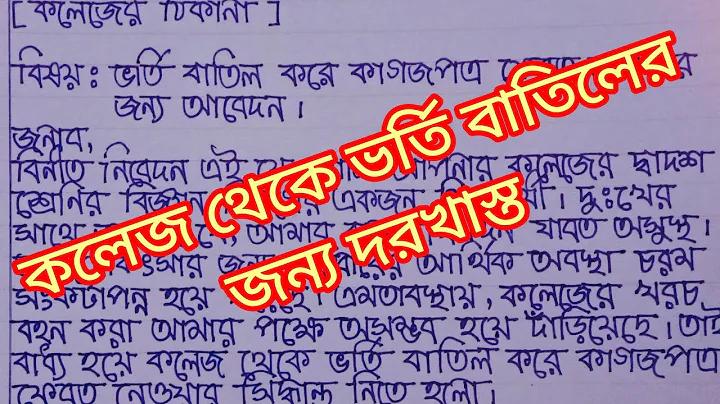 [ কলেজের ঠিকানা ]
বিষয় : ভর্তি বাতিল করে কাগজপত্র
জন্য আবেদন ।
জনাব,
বিনীত নিবেদন এই কলেজের দ্বাদশ
শ্রেনির একজন দুঃখের
সাথে আমার যাবত অসুস্থ ।
আর্থিক অবস্থা চরম
সংকটাপন্ন হয়ে এমতাবস্থায়, কলেজের খরচ
বহন করা আমার পক্ষে অসম্ভব হয়ে দাঁড়িয়েছে । তাই
বাধ্য হয়ে কলেজ থেকে ভর্তি বাতিল করে কাগজপত্র
ফেরত নেওয়ার সিদ্ধান্ত নিতে হলো ।
কলেজ থেকে ভর্তি বাতিলের
জন্য দরখাস্ত